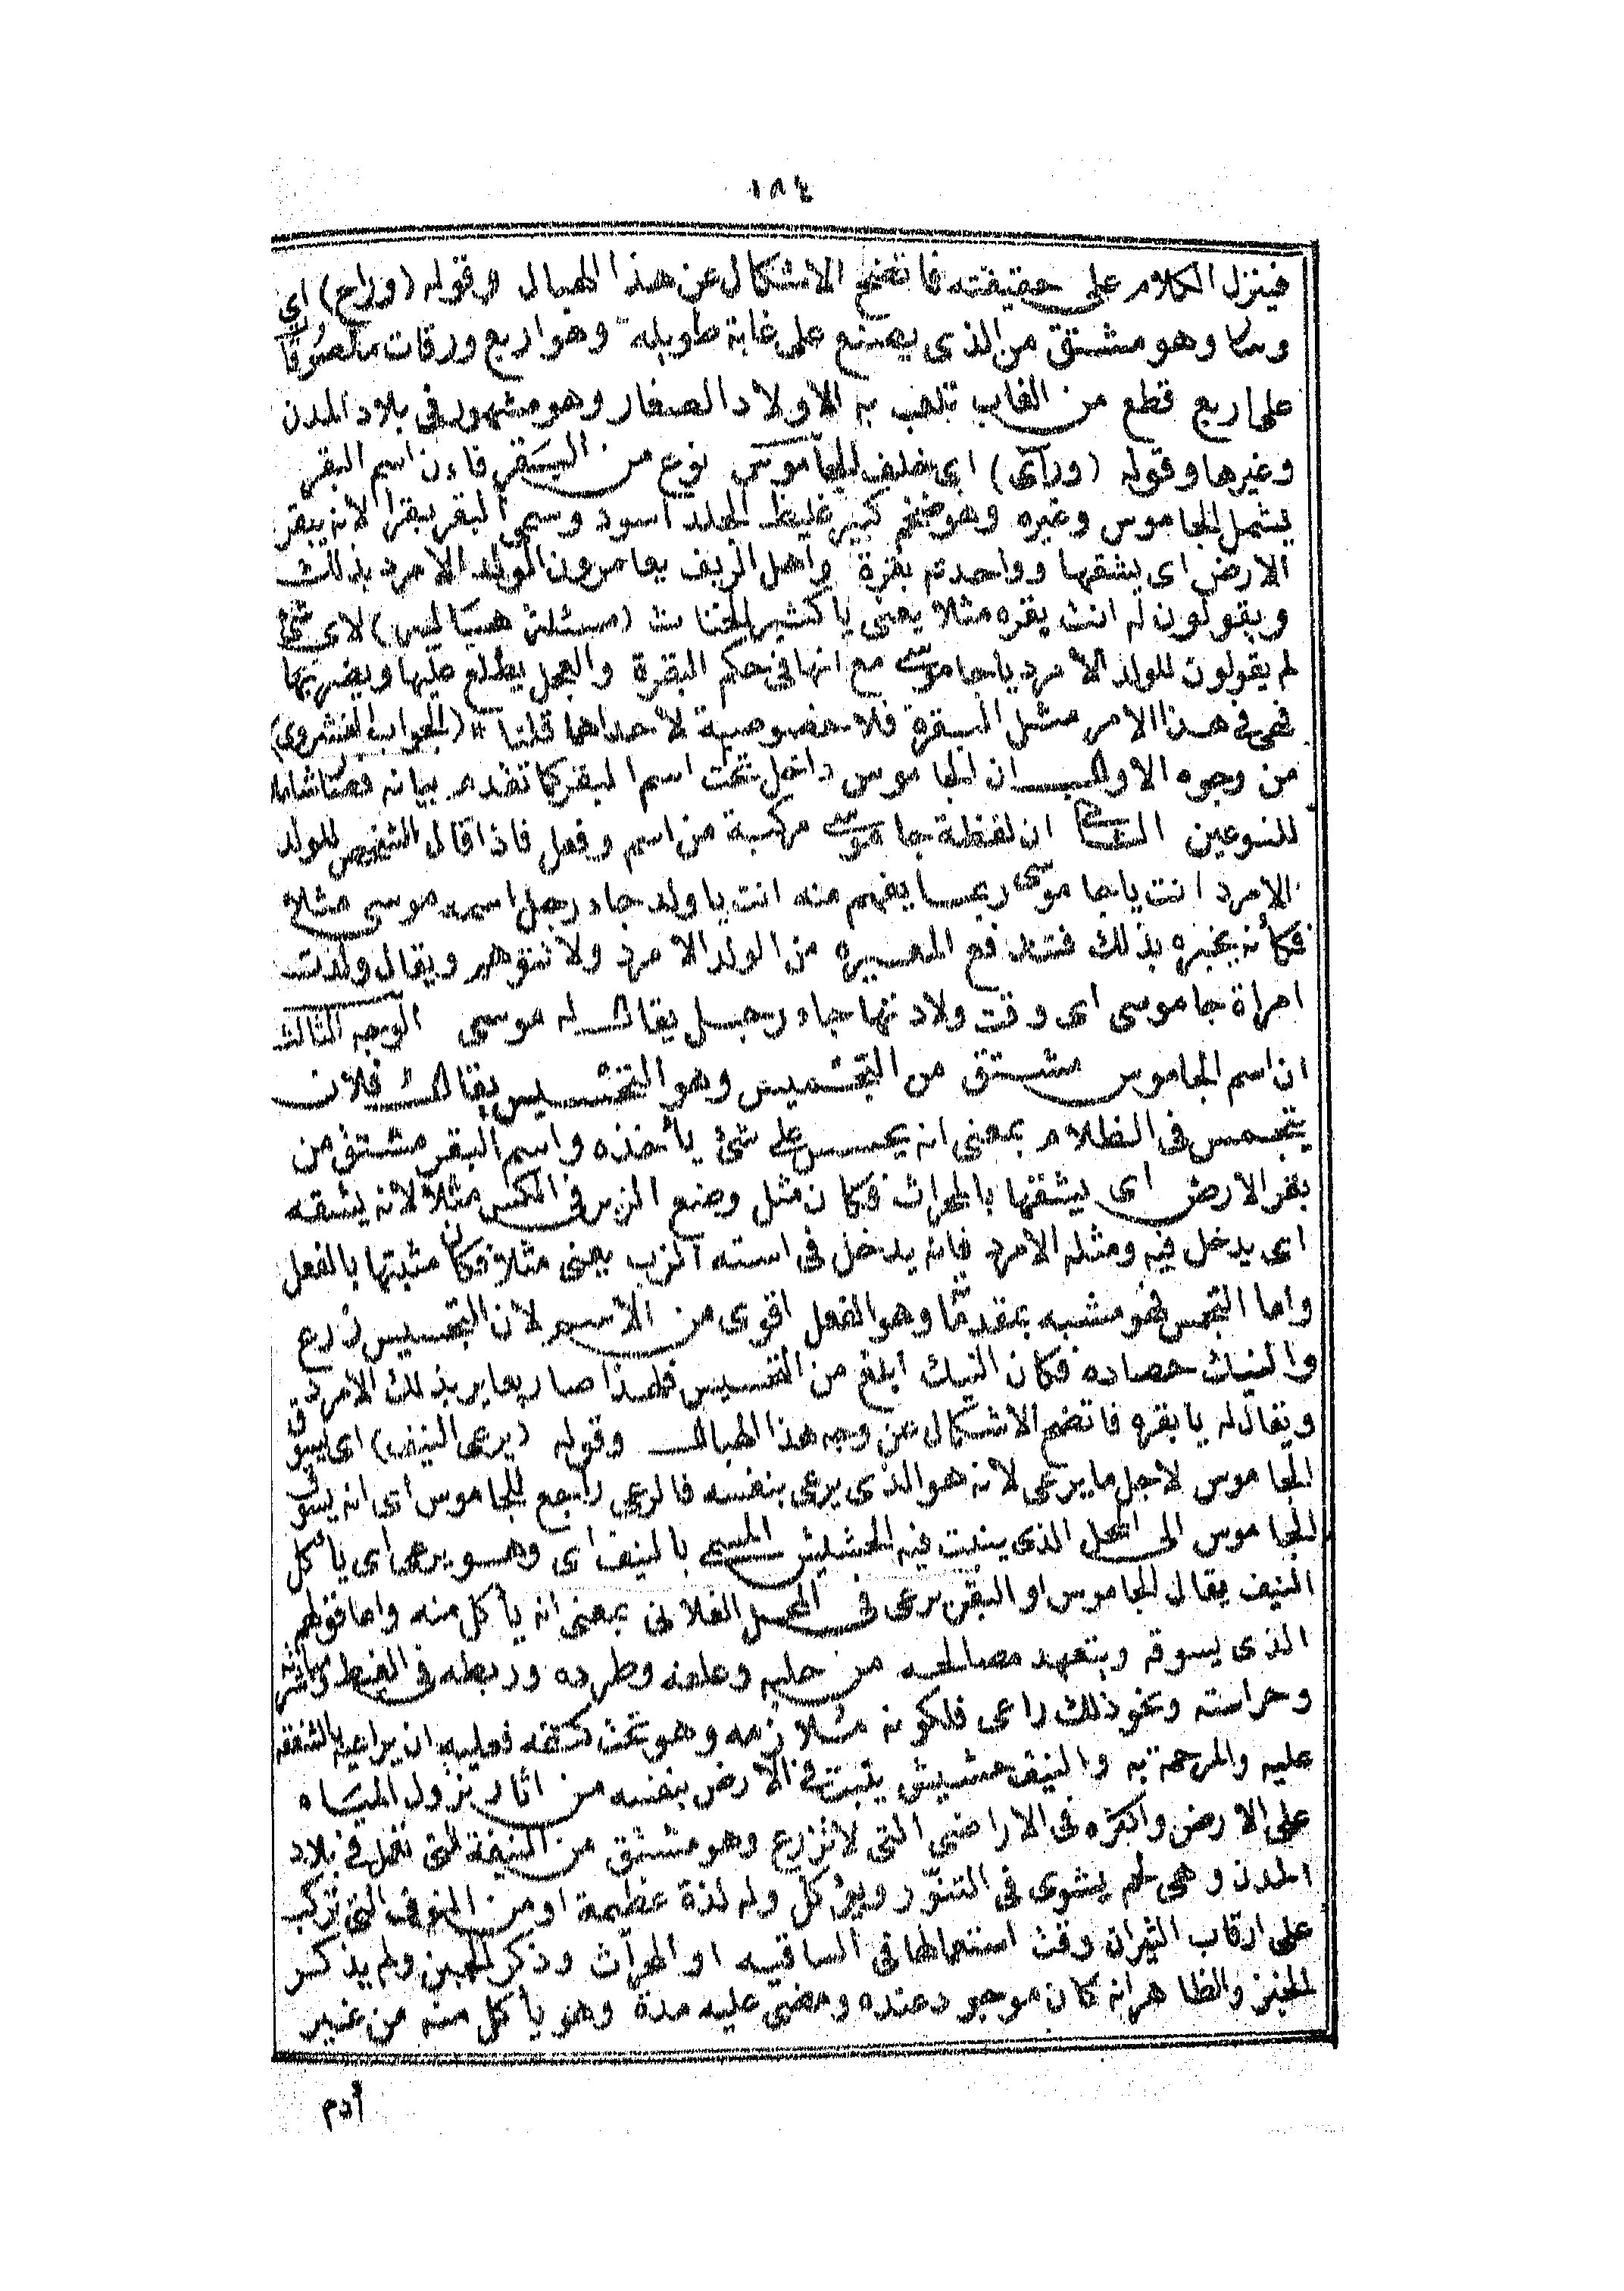 ١٨٤
فينزل الكلام على حقيقته فاتضح الاشكال عن هذا الهبال وقوله (وراح) اى
وهو مشتق من الذى يصنع على غابة طويله وهو اربع ورقات ملصوقا
على اربع قطع من الغاب تلعب به الاولاد الصغار وهو مشهور فى بلاد المدن
وغيرها وقوله (وراى) اى خلف الجاموس نوع من البقر فاءن اسم البقر
يشمل الجاموس وغيره وهو ضخم كبير غليظ الجلد اسود وسمى البقر بقرا لانه يبقر
الارض اى يشقها وواحدته بقرة واهل الريف يعايرون الولد الامرد بذلك
ويقولون له انت بقره مثلا يعنى ياكثير الخناث (مسئلة هباليه) لاى شئ
لم يقولون للولد الامرد ياجاموسى مع انها فى حكم البقرة والعجل يطلع عليها ويضربها
فهى فى هذا الامر مثل البقرة فلا خصوصية لاحداها قلنا (الجواب الفشروى)
من وجوه الاول ان الجاموس داخل تحت اسم البقر كما تقدم بيانه فصار شاملا
للنوعين الثانى ان لفظة جاموسى مركبة من اسم وفعل فاذا قال الشخص للولد
الامرد انت ياجاموسى ربما يفهم منه انت ياولد جاء رجل اسمه موسى مثلا
فكأنه يخبره بذلك فتندفع المعيره من الولد الامرد ولا تتوهم ويقال ولدت
امراة جاموسى اى وقت ولادتها جاء رجل يقال له موسى الوجه الثالث
ان اسم الجاموس مشتق من التجميس وهو التحسيس يقال فلان
يتجمس فى الظلام بمعنى انه يحسس على شئ يأخذه واسم البقر مشتق من
بقر الارض اى يشقها بالمحراث فكان مثل وضع الزب فى الكس مثلا لانه يشقه
اى يدخل فيه ومثله الامرد فانه يدخل فى استه الزب يعنى مثلا فكان مثبتها بالفعل
واما التجمس فهو مشبه بمقدمتا وهو الفعل اقوى من الاسم لان التجسيس زرع
والنيك حصاده فكان النيك ابلغ من التحسيس فلهذا صار يعاير بذلك الامرد
ويقال له يا بقره فاتضح الاشكال عن وجه هذا الهبال وقوله (يرعى النيف) اى يسوق
الجاموس لاجل ما يرعى لانه هو الذى يرعى بنفسه فالرعى راجع للجاموس اى انه يسوق
الجاموس الى المحل الذى ينبت فيه الحشيش المسمى بالنيف اى وهو يرعى اى ياكل
النيف يقال الجاموس او البقر يرعى فى المحل الفلانى بمعنى انه يأكل منه واما قولهم
الذى يسوقه ويتعهد مصالحه من حليه وعلفه وطرده وربطه فى الغيط
وحراسته ونحو ذلك راعى فلكونه ملازمه وهو تحت كنفه فعليه ان يراعيه بالشفقه
عليه والمرحمة به والنيف حشيش ينبت فى الارض بنفسه من اثار نزول المياه
على الارض واكثره فى الاراضى التى لا تزرع وهو مشتق من النيفة التى تعمل فى بلاد
المدن وهى لحم يشوى فى التنور ويؤكل وله لذة عظيمة او من النوف التى تركب
على ارقاب الثيران وقت استعمالها فى الساقيه او المحراث وذكر الجبن ولم يذكر
الخبز والظاهر انه كان موجود عنده ومضى عليه مدة وهو ياكل منه من غير
أدم